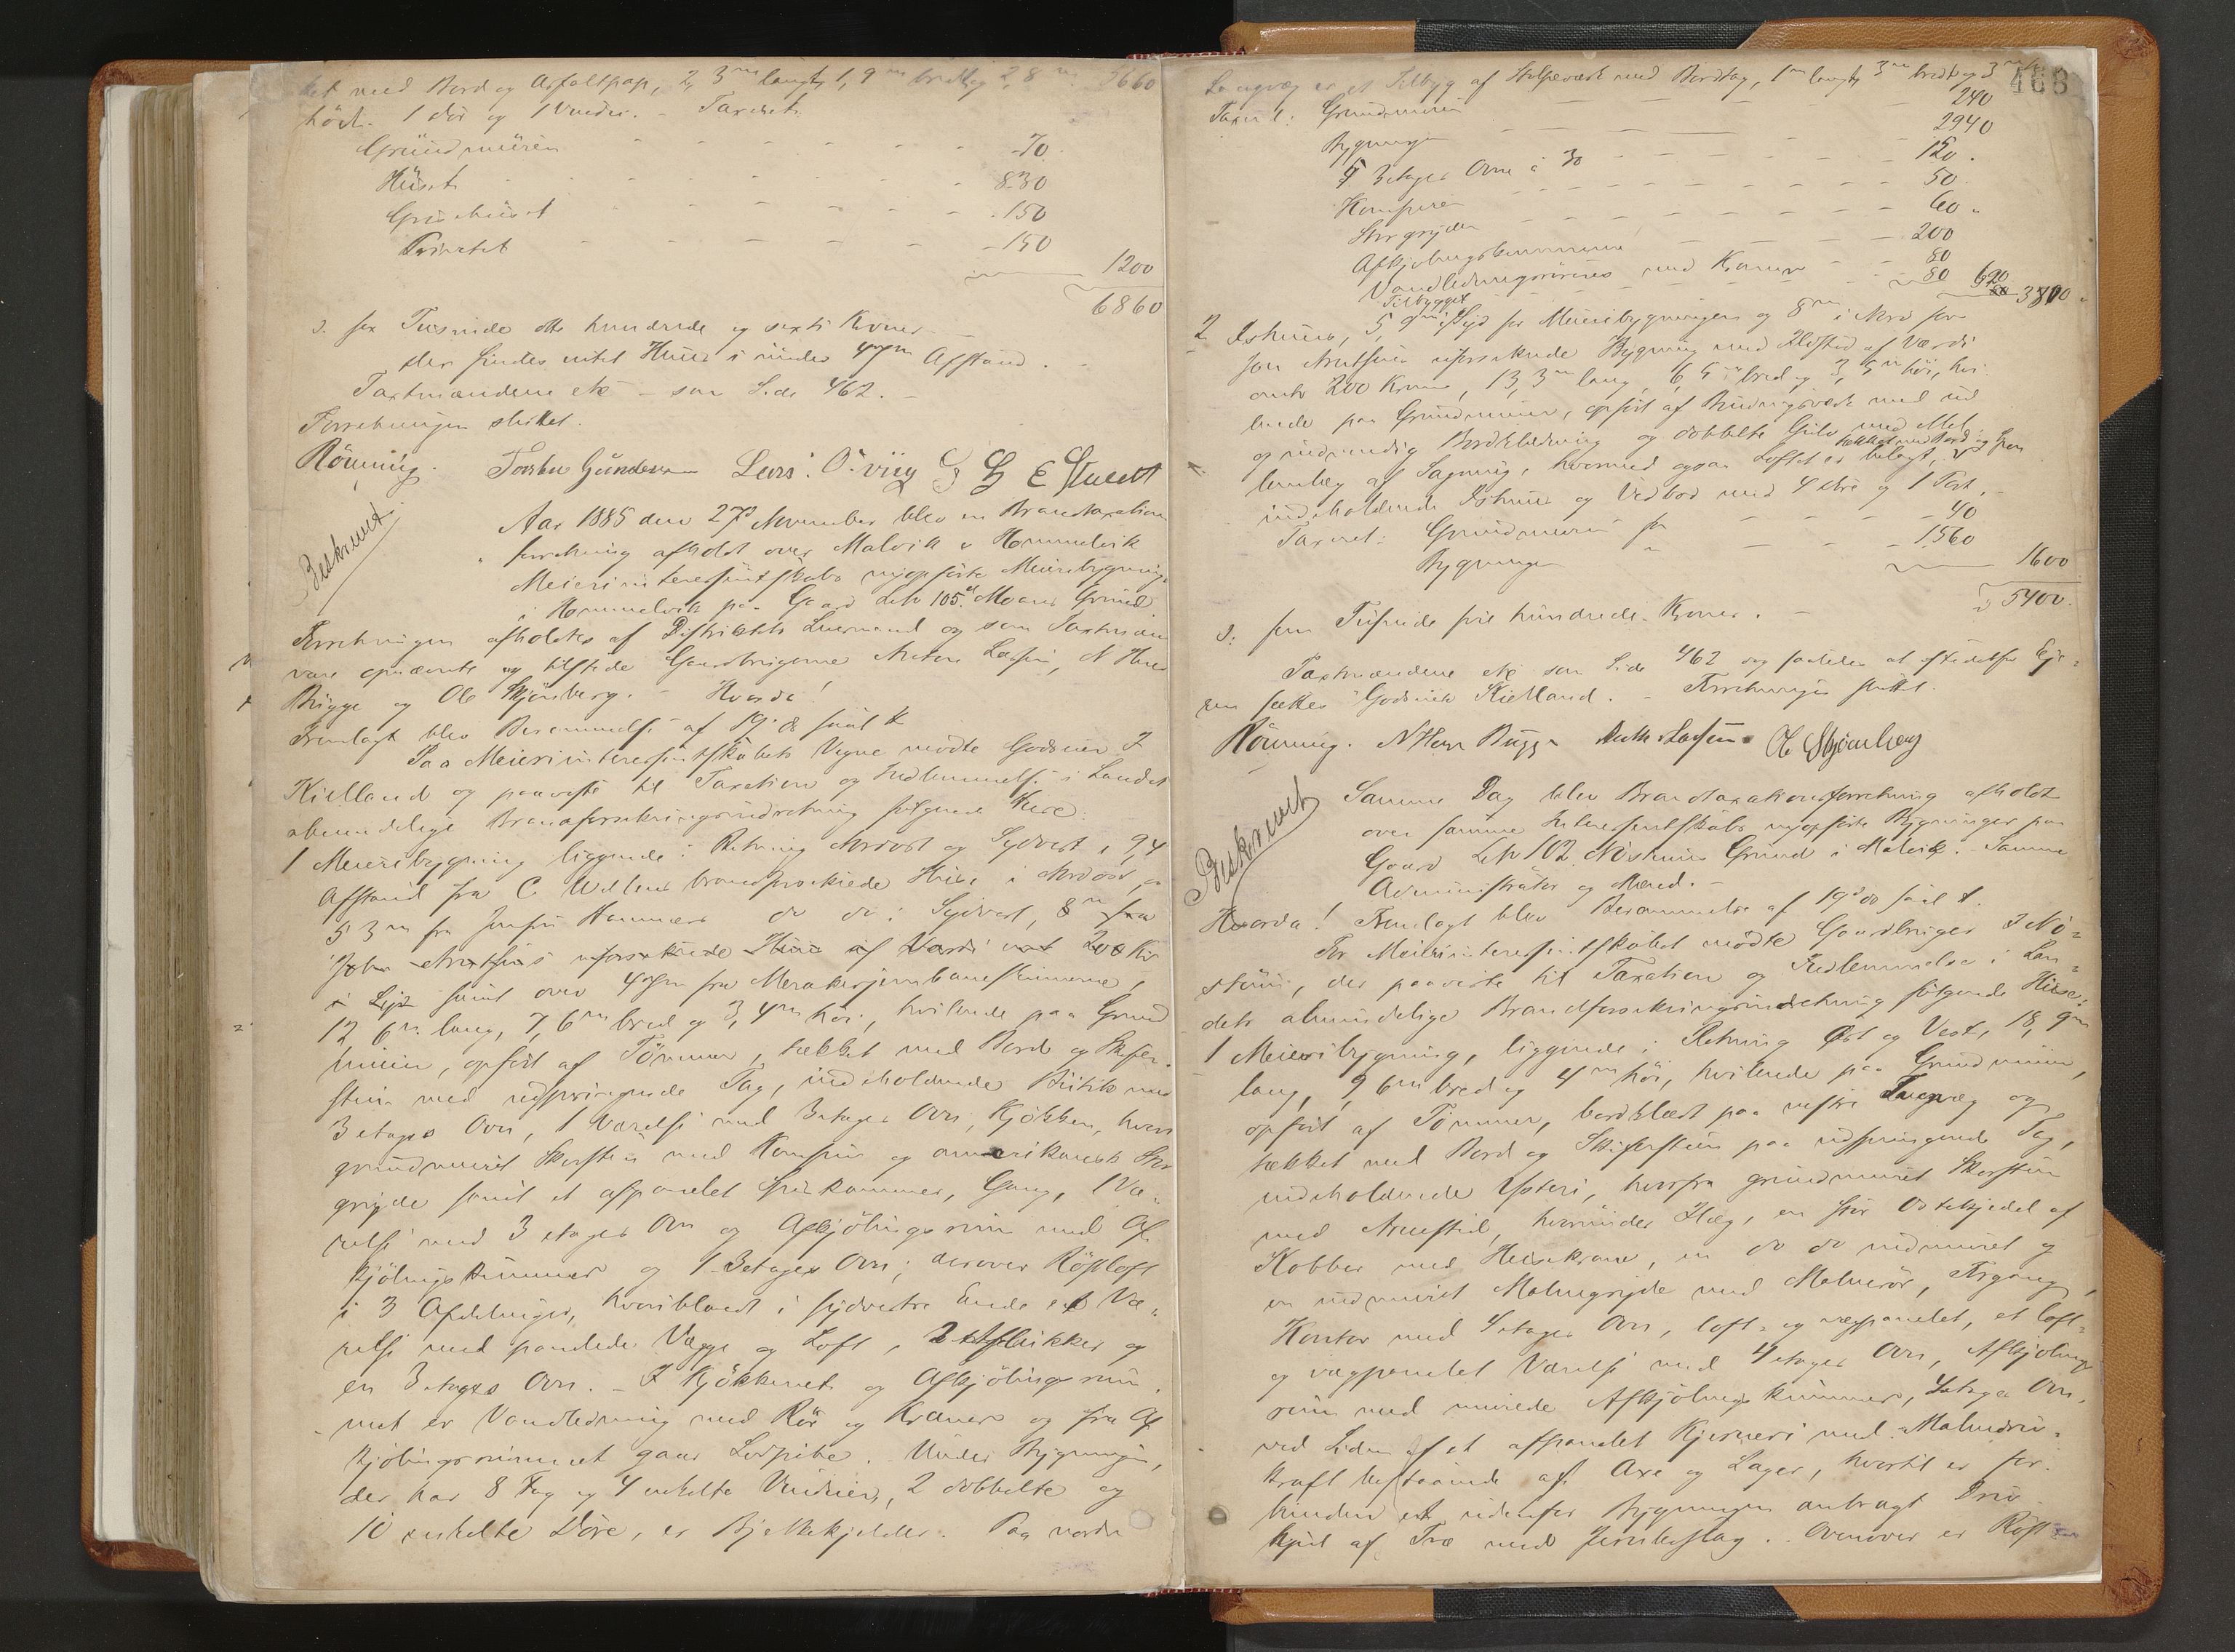 tet med Bord og Asfaltpap, 2,3m langt, 1,9m bredt og 2,8m 2660
höit. 1 dör og 1 Vindu. - Taxeret:
Grundmuren - 70
Huset - 830
Grisehuset - 150
Privetet - 150
1200
6860
ɔ: sex Tusinde otte hundrede og sexti Kroner. -
der findes intet Huus i under Afstand.
Taxtmændene etc - som Side 462. -
Forretningen sluttet.
Rönning. Torsten Gundersen Lars Öwiig E Stuedt
Beskrevet.
Aar 1885 den 27de November blev en Brandtaxations
forretning afholdt over Malvik & Hommelvik
Meieriinteressentskabs nyopförte Meieribygning
i Hommelvik paa Gaard Lnr 105d Moanes Grund.
Forretningen afholdtes af Distriktets Lensmand og som Taxtmænd
vare opnævnte og tilstede Gaardbrugerne Anton Lassen, N Hans
Bügge og Ole Stjernberg. - Hvorda!
Fremlagt blev Berammelse af 19. ds saal. #
Paa Meieriinteressentskabets Vegne mödte Godseier J
Kielland og paaviste til Taxation og Indlemmelse i Landets
almindelige Brandforsikringsindretning fölgende Huse:
1 Meieribygning liggende i Retning Nordost og Sydvest, 94
Afstand fra C Wullums brandforsikrede Huse i Nordost, og
53m fra Jensen Hammers do do i Sydvest, 8m fra
John Arntsens uforsikrede Huus af Værdi omt 200 Kr
i Syd samt over fra Merakerjernbaneskinnerne,
12,6m lang, 7,6m bred og 3,4m höi, hvilende paa Grund
muur, opfört af Tömmer, tækket med Bord og Skifer-
steen med udspringende Tag, indeholdende Butik med
3 etages Ovn, 1 Værelse med 3 etages Ovn, Kjökken, hvori
grundmuret Skorsten med Komfur og amerikansk Stor
gryde samt et afpanelet Spiskammer, Gang, 1 Væ-
relse med 3 etages Ovn og Afkjölingsrum med Af-
kjölingskummer og 1 3 etages Ovn; derover Röstloft
i 3 Afdelinger, hvoriblandt i sydvestre Ende et Væ-
relse med panelede Vægge og Loft, 2 Aflukker og
en 3 etages Ovn. - I Kjökkenet og Afkjölingsrum-
met er Vandledning med Rör og Kraner og fra Af
kjölingsrummet gaar Ledpibe. Under Bygningen,
der har 8 Fag og 4 enkelte Vinduer, 2 dobbelte og
10 enkelte Döre, er Bjelkekjelder. Paa nordre
468
Langvæg er et Tilbyg af Stolpeværk med Bordtag, 1m langt, 3m bredt og 3m
Taxeret: Grundmuren - 240
Bygningen - 2940
4 3 etages Ovne à 30 - 120.
Komfuren - 50.
Storgryden - 60.
Afkjölingskummerne - 200
Vandledningsrörene med Kraner - 80
Tilbygget - 80 620 3800
2 Ishuus, 5,9m i Syd for Meieribygningen og 8m i Nord for
John Arntsens uforsikrede Bygning med Ildsted af Værdi
omtr 200 Kroner, 13,3m lang, 6,5m bred og 3,5m höi, hvi-
lende paa Grundmuur, opfört af Bindingsværk med ud
og indvendig Bordklædning og dobbelte Gulv med Mel-
lemlæg af Sagmug, hvormed ogsaa Loftet er belagt, tækket med Bord og Spon
indeholdende Ishuus og Vedbod med 4 döre og 1 Port. -
Taxeret: Grundmuren for - 40
Bygningen " - 1560
1600
5400.
ɔ: fem Tusinde fire hundrede Kroner. -
Taxtmændene etc som Side 462 og saaledes at istedetfor Eje-
ren sættes "Godseier Kielland". - Forretningen sluttet.
Rönning. N Hans Bügge Anton Lassen Ole Stjernberg
Beskrevet
Samme Dag blev Brandtaxationsforretning afholdt
over samme Interessentskabs nyopförte Bygninger paa
Gaard LNr 102 Nöstuens Grund i Malvik. - Samme
Administrator og Mænd. -
Hvorda! Fremlagt blev Berammelse af 19de ds saal #.
For Meieriinteressentskabet mödte Gaardbruger J Nö-
stuen, der paaviste til Taxation og Indlemmelse i Lan-
dets almindelige Brandforsikringsindretning fölgende Huse:
1 Meieribygning, liggende i Retning Öst og Vest, 18,9m
lang, 9,6m bred og 4m höi, hvilende paa Grundmuur,
opfört af Tömmer, bordklædt paa vestre Langvæg og
tækket med Bord og Skifersteen paa udspringende Tag,
indeholdende Ysteri, hvorfra grundmuret Skorsten
med Aruested, hvorunder Hæg, en stor Ostekjedel af
Kobber med Heisekrane, en do do indmuret og
en indmuret Malmgryde med Malmrör, Forgang,
Kontor med 4 etages Ovn, loft- og vægpanelet, et loft-
og vægpanelet Værelse med 4 etages Ovn, Afkjölings
rum med murede Afkjölingskummer, 4 etages Ovn,
ved Siden af et afpanelet Kjerneri med Malmdriv-
kraft bestaaende af Axe og Lager, hvortil er for-
bunden et udenfor Bygningen anbragt Driv-
hjul af Træ med Jernbeslag. Ovenover er Röst